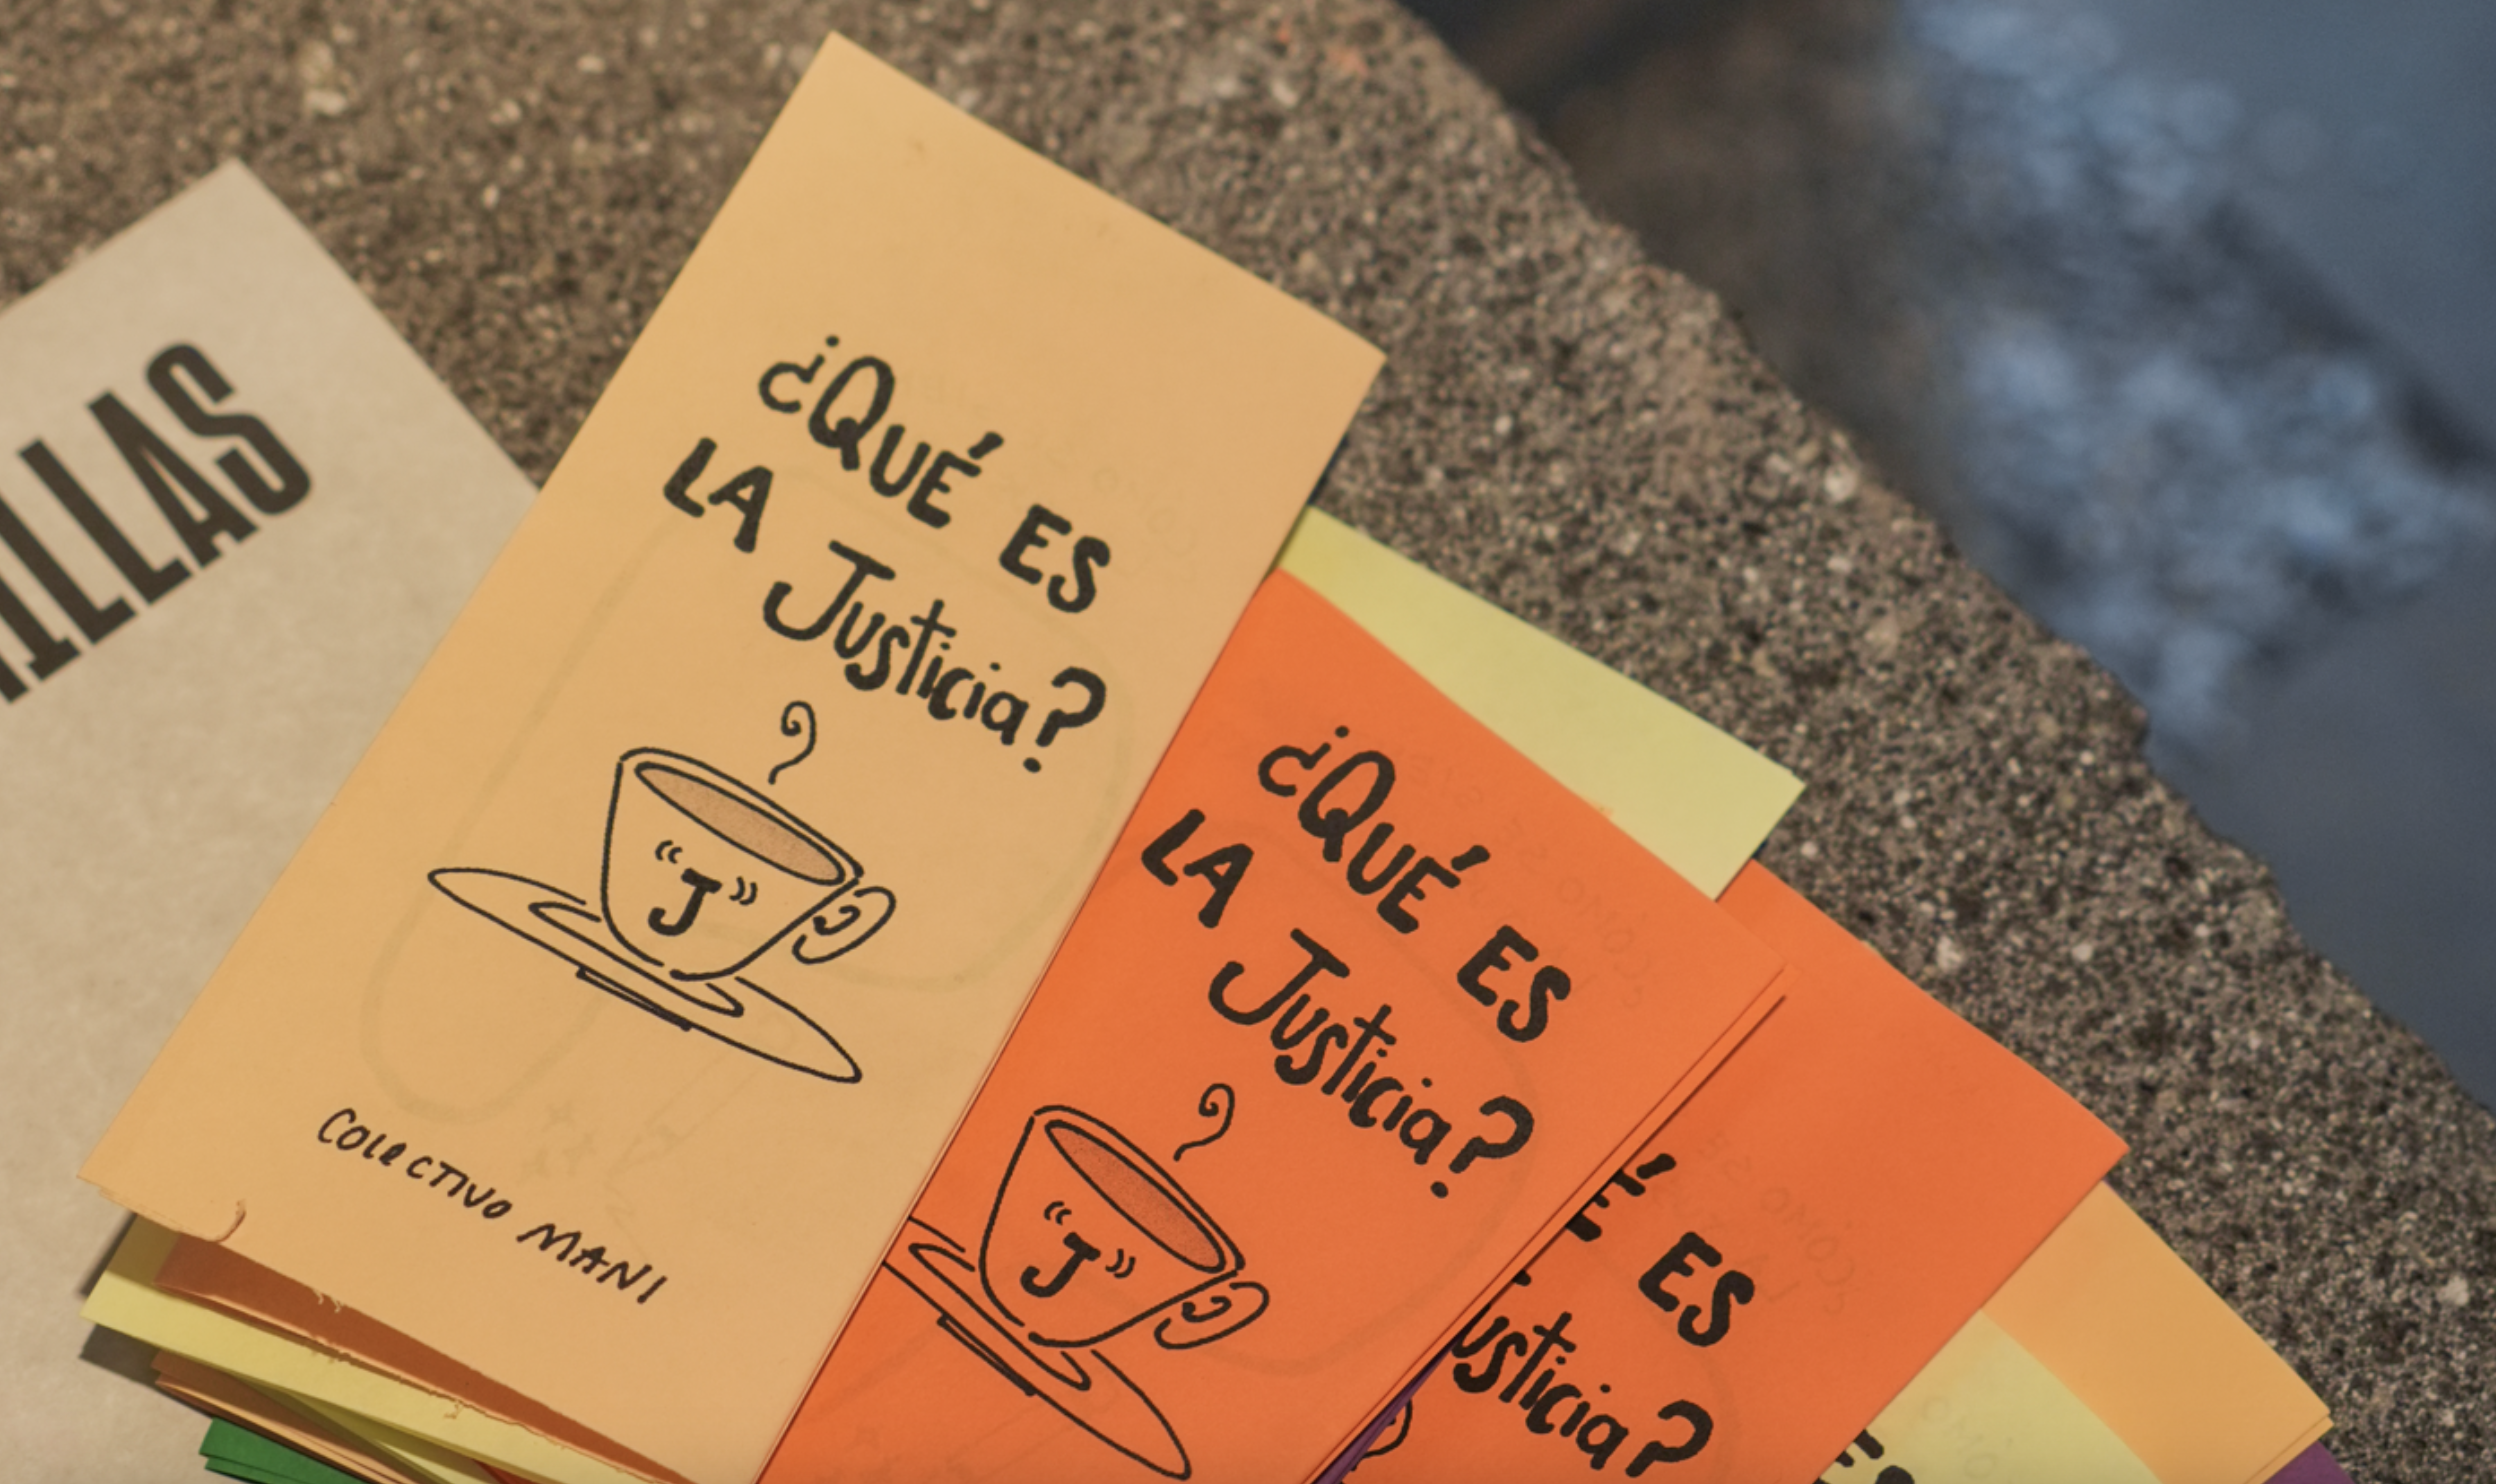 ¿QUÉ ES
LA Justicia?
"J"
COLECTIVO MANI
¿QUÉ ES
LA Justicia?
"J"
É ES
usticia?
ES
ILLAS